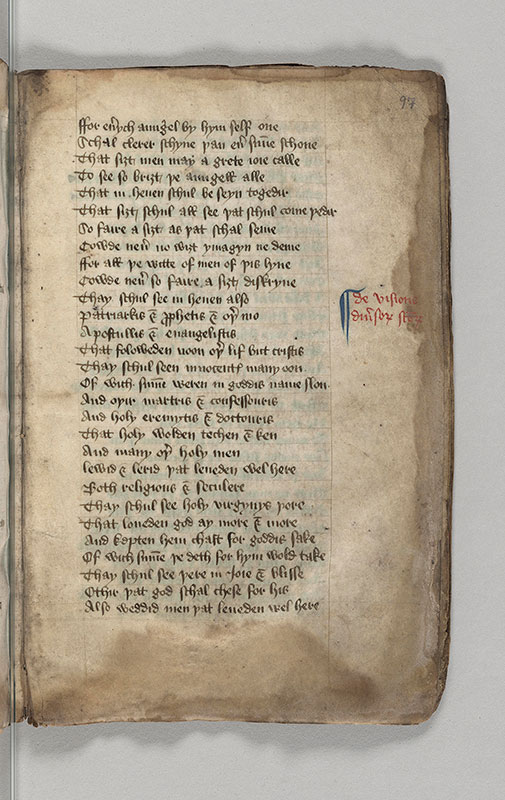 97
ffor eu̅ych aungel by hym self one
Schal clerer schyne þan eu̅ su̅ne schone
That siȝt men may a grete ioie calle
To see so briȝt þe aungell alle
That in heuen schul be seyn togedir
That siȝt schul all see þat schul come þedir
So faire a siȝt as þat schal seme
Cowde neu̅ no wiȝt ymagyn ne deme
ffor all þe witte of men of þis lyue
Cowde neu̅ so faire a siȝt diskryue
Thay schul see in heuen also
Patriarkis & ꝓphetis & oþ̅ mo
Apostullis & euangelistis
That foloweden noon oþ̅ lif but cristis
Thay schul seen innocentȝ many oon
Of wich su̅me weren in goddis name slon
And oþir martris & confessouris
And holy eremytis & doctouris
That holy wolden techen & ken
And many oþ̅ holy men
lewid & lerid þat leueden wel here
Both religious & seculere
Thay schul see holy virgynys þere
That loueden god ay more & more
And kepten hem chast for goddis sake
Of wich su̅me þe deth for hym wold take
Thay schul see þere in Ioie & blisse
Othir þat god schal chese for his
Also weddid men þat leueden wel here
de visione
diu̅sorꝝ